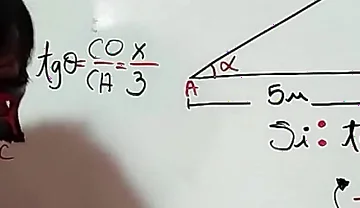 tgθ = CO/CA = x/3
α
A
5m
Si: t